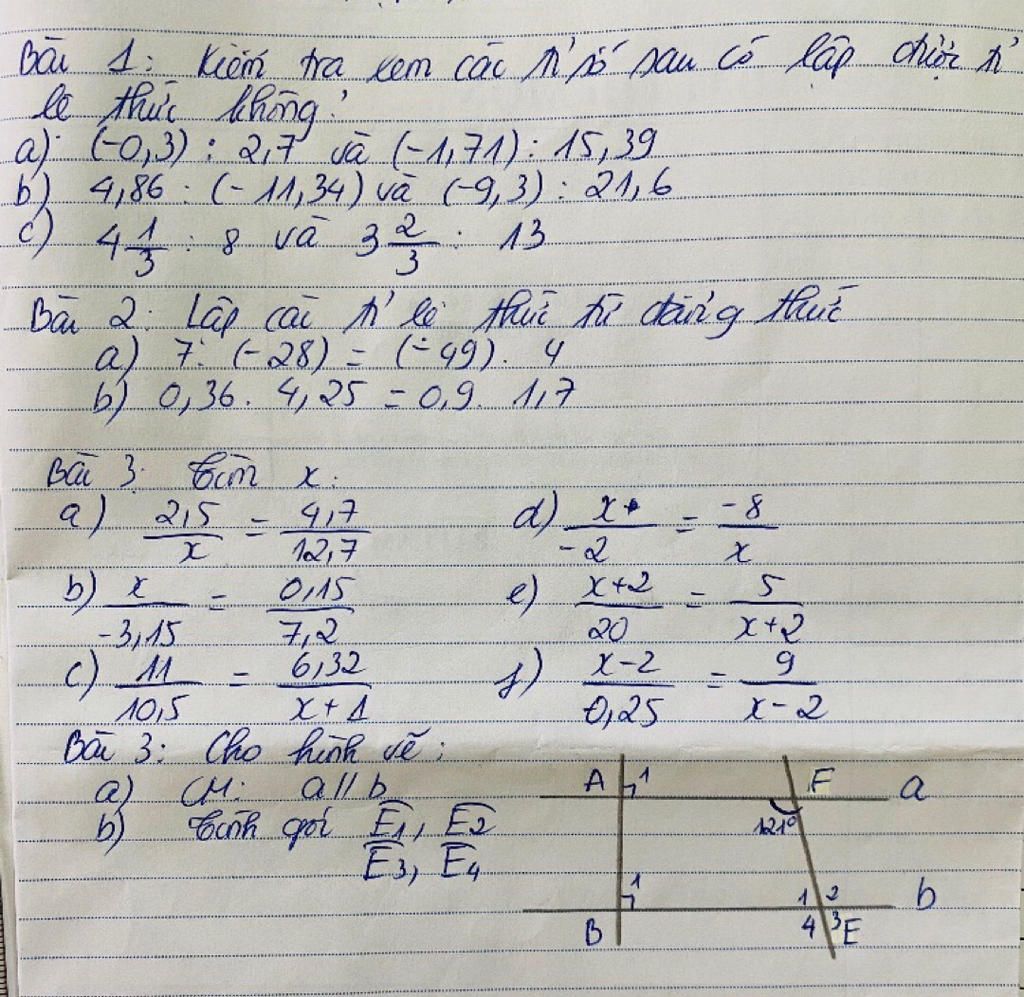 Bài 1: Kiểm tra xem các tỉ số sau có lập được tỉ
lệ thức không?
a) (-0,3) : 2,7 và (-1,71) : 15,39
b) 4,86 : (-11,34) và (-9,3) : 21,6
c) 4 1/3 : 8 và 3 2/3 : 13
Bài 2: Lập các tỉ lệ thức từ đẳng thức
a) 7. (-28) = (-49). 4
b) 0,36. 4,25 = 0,9. 1,7
Bài 3: Tìm x:
a) 2,5/x = 4,7/12,7
d) x/-2 = -8/x
b) x/-3,15 = 0,15/7,2
e) x+2/20 = 5/x+2
c) 11/10,5 = 6,32/x+1
f) x-2/0,25 = 9/x-2
Bài 3: Cho hình vẽ:
a) CM: a // b
b) Tính gói E1, E2
E3, E4
A 1 F a
121°
1 1 2 b
B 4 3 E